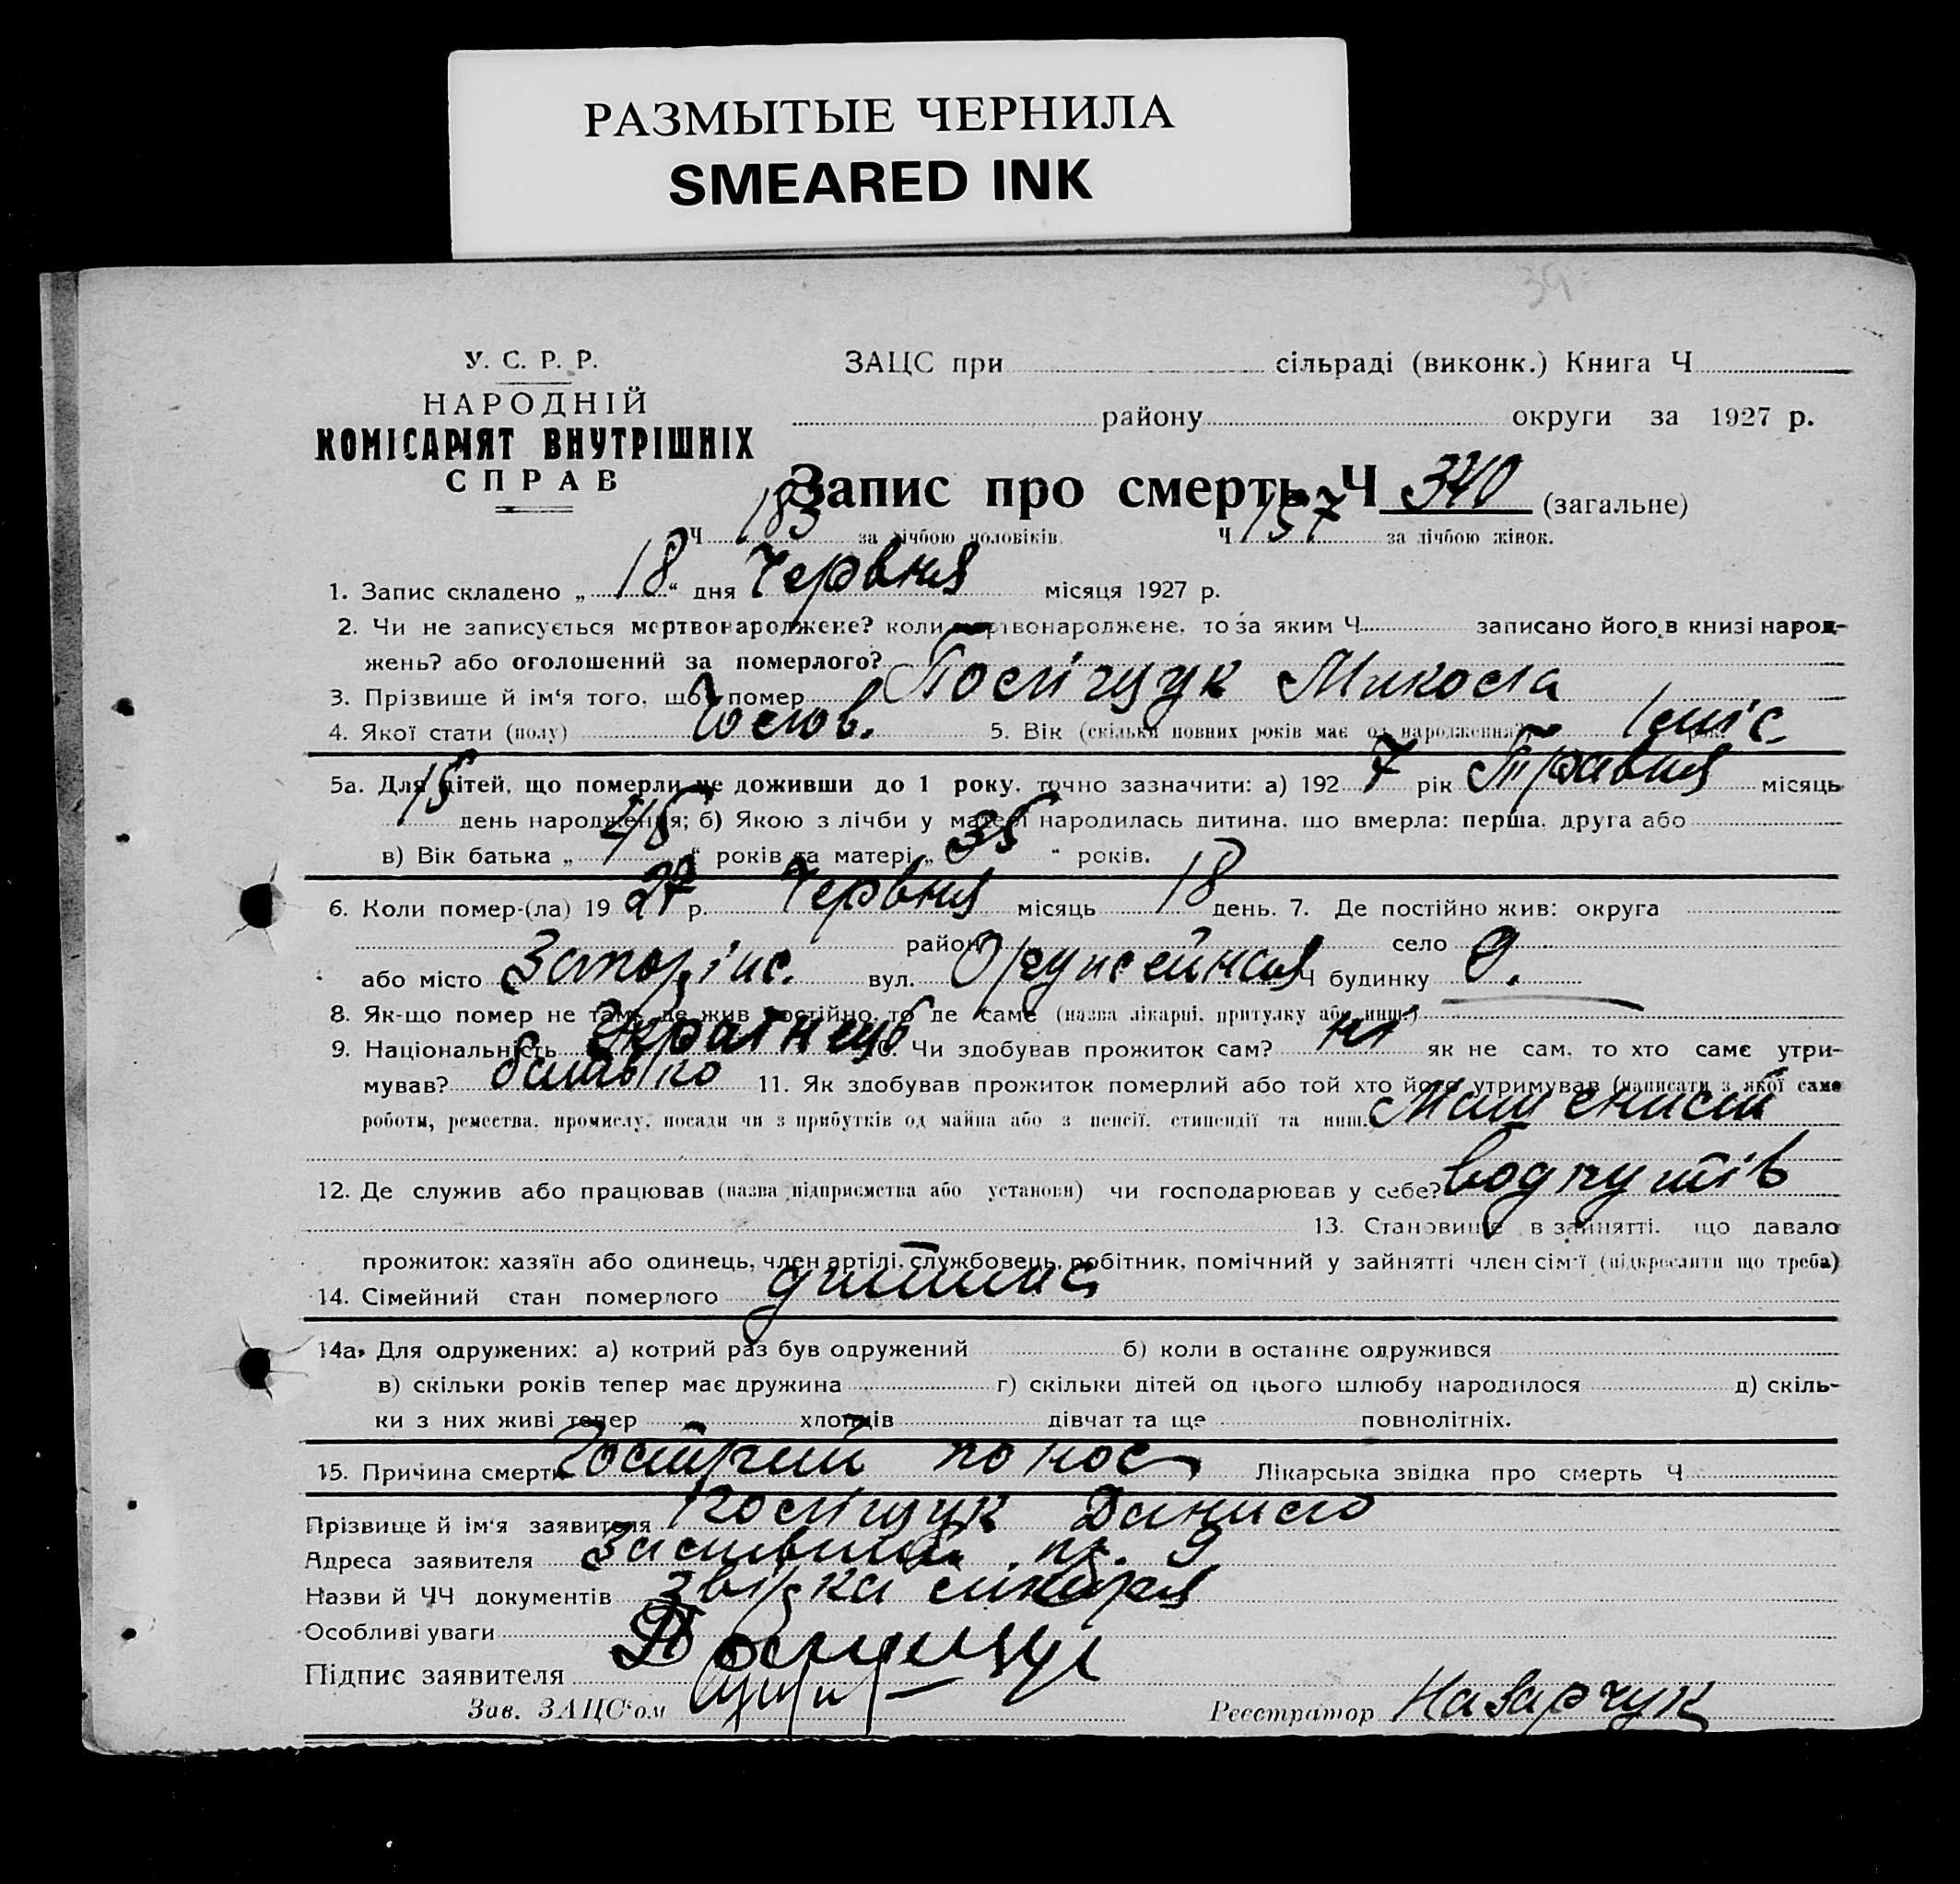 РАЗМЫТЫЕ ЧЕРНИЛА
SMEARED INK
39
У. С. Р. Р.
НАРОДНІЙ
КОМІСАРІЯТ ВНУТРІШНІХ
СПРАВ
ЗАЦС при сільраді (виконк.) Книга Ч
району округи за 1927 р.
Запис про смерть Ч 340 (загальне)
Ч 183 за лічбою чоловіків. Ч 157 за лічбою жінок.
1. Запис складено „ 18 “ дня Червня місяця 1927 р.
2. Чи не записується мертвонароджене? коли мертвонароджене, то за яким Ч записано його в книзі народ-
жень? або оголошений за померлого?
3. Прізвище й ім'я того, що помер Поліщук Микола
4. Якої стати (полу) Чолов. 5. Вік (скільки повних років має од народження) 1 міс.
5а. Для дітей, що померли не доживши до 1 року, точно зазначити: а) 192 7 рік Травня місяць
15 день народження; б) Якою з лічби у матері народилась дитина, що вмерла: перша, друга або
в) Вік батька „ 46 “ років та матері „ 36 “ років.
6. Коли помер-(ла) 19 27 р. Червня місяць 18 день. 7. Де постійно жив: округа
район село
або місто вул. Ч будинку 9.
8. Як-що помер не там, де жив постійно, то де саме (назва лікарні, притулку або инш.)
9. Національність Українець 10. Чи здобував прожиток сам? ні як не сам, то хто саме утри-
мував? батько 11. Як здобував прожиток померлий або той хто його утримував (написати з якої саме
роботи, ремества, промислу, посади чи з прибутків од майна або з пенсії, стипендії та инш.) Машиніст
12. Де служив або працював (назва підприємства або установи) чи господарював у себе? водпутів
13. Становище в зайнятті, що давало
прожиток: хазяїн або одинець, член артілі, службовець, робітник, помічний у зайнятті член сім'ї (підкреслити що треба)
14. Сімейний стан померлого дитина
14а. Для одружених: а) котрий раз був одружений б) коли в останнє одружився
в) скільки років тепер має дружина г) скільки дітей од цього шлюбу народилося д) скіль-
ки з них живі тепер хлопців дівчат та ще повнолітніх.
15. Причина смерти Гострий понос Лікарська звідка про смерть Ч
Прізвище й ім'я заявителя Поліщук Данило
Адреса заявителя 9
Назви й ЧЧ документів звідка лікаря
Особливі уваги
Підпис заявителя Полищук
Зав. ЗАЦС'ом Реєстратор Назарчук